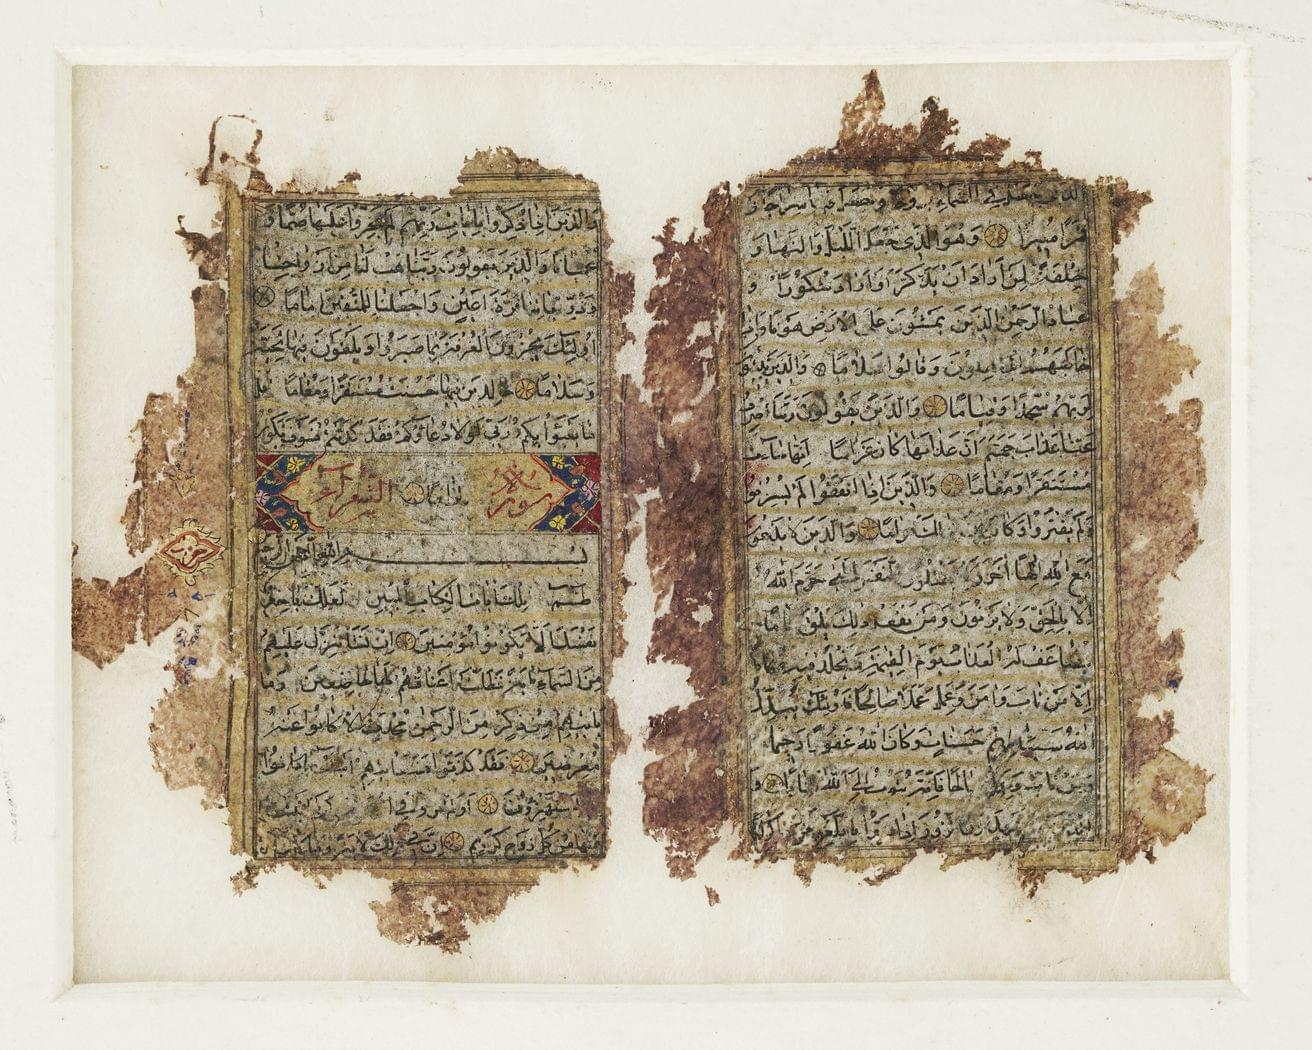 الذى جعل فى السماء بروجا وجعل فيها سراجا و
قمرا منيرا وهو الذى جعل الليل والنهار
خلفة لمن اراد ان يذكر او اراد شكورا و
عباد الرحمن الذين يمشون على الارض هونا واذا
خاطبهم الجاهلون قالوا سلاما والذين يبيتون
لربهم سجدا وقياما والذين يقولون ربنا اصرف
عنا عذاب جهنم ان عذابها كان غراما انها ساءت
مستقرا ومقاما والذين اذا انفقوا لم يسرفوا
ولم يقتروا وكان والذين لا يدعون
مع الله الها اخر ولا يقتلون النفس التى حرم الله
الا بالحق ولا يزنون ومن يفعل ذلك يلق اثاما
يضاعف له العذاب يوم القيمة ويخلد فيه مهانا
الا من تاب وامن وعمل عملا صالحا فاولئك يبدل
الله سيئاتهم حسنات وكان الله غفورا رحيما
ومن تاب وعمل صالحا فانه يتوب الى الله متابا و
الذين لا يشهدون الزور واذا مروا باللغو مروا كراما
والذين اذا ذكروا بايات ربهم لم يخروا عليها صما و
عميانا والذين يقولون ربنا هب لنا من ازواجنا
وذرياتنا قرة اعين واجعلنا للمتقين اماما
اولئك يجزون الغرفة بما صبروا ويلقون فيها تحية
وسلاما خالدين فيها حسنت مستقرا ومقاما قل
ما يعبؤا بكم ربى لولا دعاؤكم فقد كذبتم فسوف يكون
سورة الشعراء
بسم الله الرحمن الرحيم
طسم تلك ايات الكتاب المبين لعلك باخع
نفسك الا يكونوا مؤمنين ان نشا ننزل عليهم
من السماء اية فظلت اعناقهم لها خاضعين وما
ياتيهم من ذكر من الرحمن محدث الا كانوا عنه
معرضين فقد كذبوا فسياتيهم انباء ما كانوا
به يستهزؤن اولم يروا الى الارض كم انبتنا
فيها من كل زوج كريم ان فى ذلك لاية وما كان